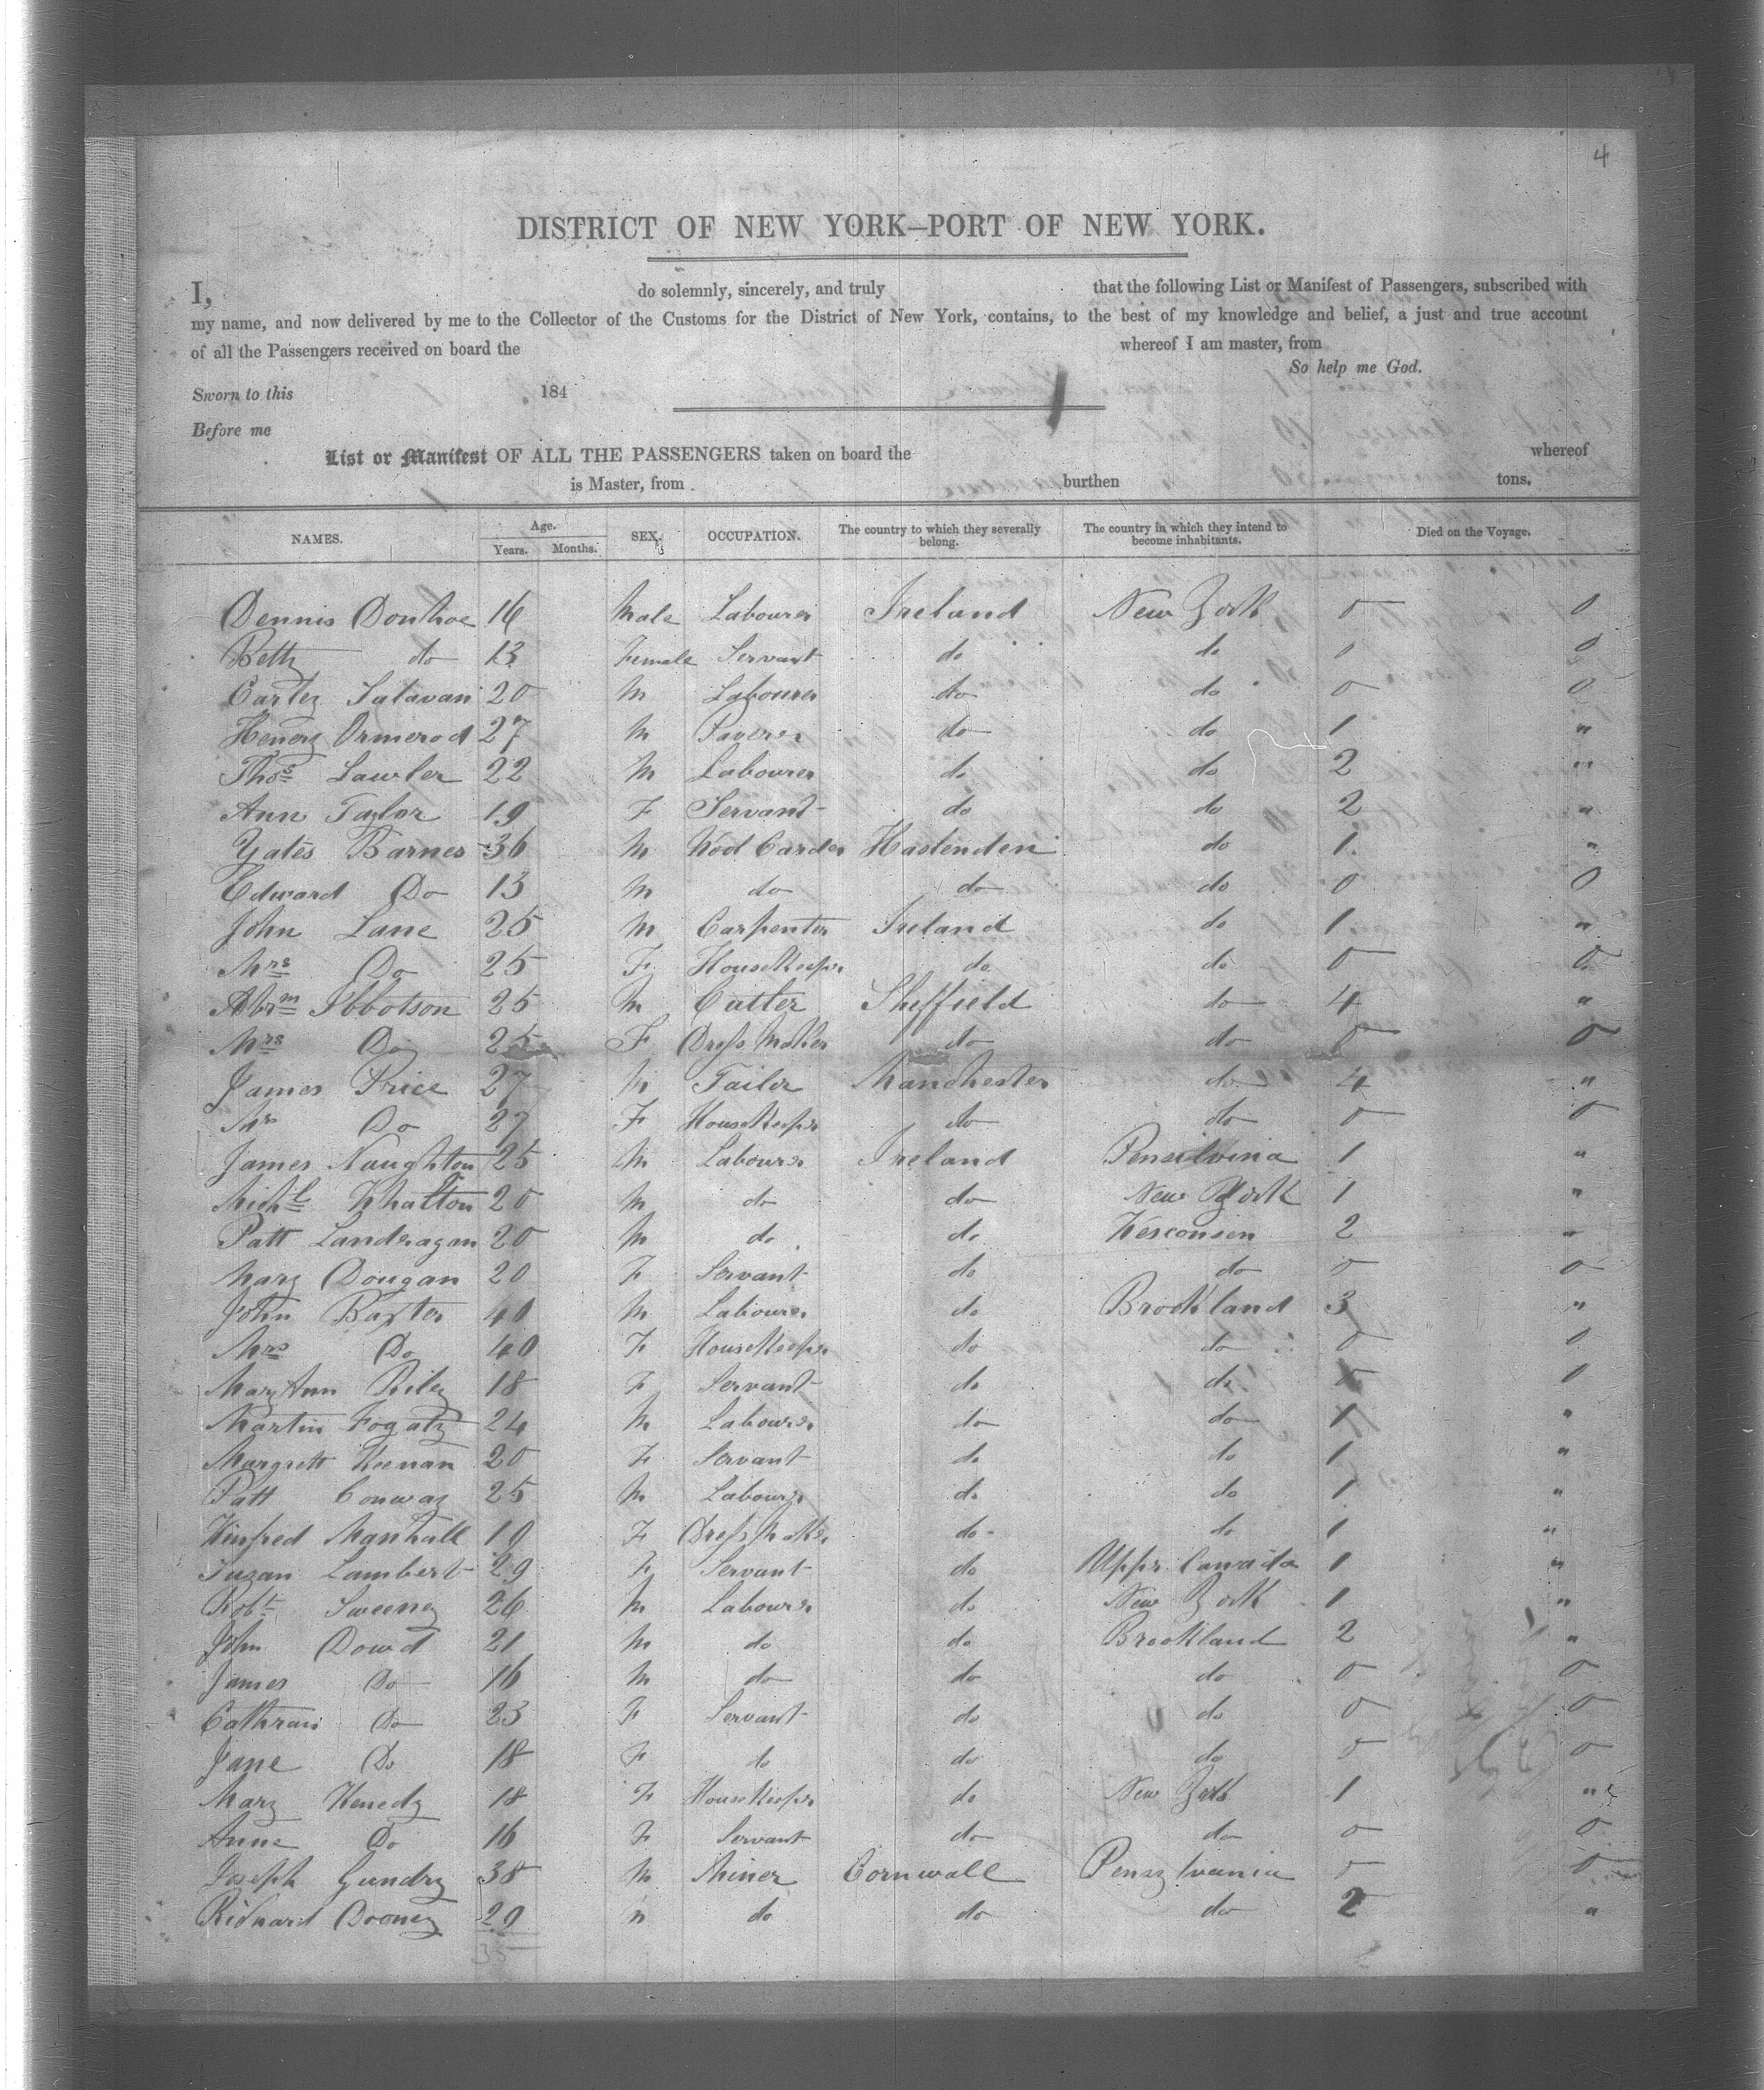 4
DISTRICT OF NEW YORK–PORT OF NEW YORK.
I, do solemnly, sincerely, and truly that the following List or Manifest of Passengers, subscribed with
my name, and now delivered by me to the Collector of the Customs for the District of New York, contains, to the best of my knowledge and belief, a just and true account
of all the Passengers received on board the whereof I am master, from
So help me God.
Sworn to this 184
Before me
List or Manifest OF ALL THE PASSENGERS taken on board the whereof
is Master, from burthen tons.
NAMES. Age. Years. Months. SEX. OCCUPATION. The country to which they severally belong. The country in which they intend to become inhabitants. Died on the Voyage.
Dennis Donhoe 16 Male Labourer Ireland New York 0 0
Betty do 13 Female Servant do do 0 0
Carley Salavan 20 M Labourer do do 0 0
Henery Ormerod 27 M Paverer do do 1 "
Thos Lawler 22 M Labourer do do 2 "
Ann Taylor 19 F Servant do do 2 "
Yates Barnes 36 M Wool Carder Haslenden do 1 "
Edward Do 13 M do do do 0 0
John Lane 25 M Carpenter Ireland do 1 "
Mrs Do 25 F HouseKeeper do do 0 0
Abrm Ibbotson 25 M Cutler Sheffield do 4 "
Mrs Do 25 F Dress Maker do do 0 0
James Price 27 M Tailer Manchester do 4 "
Mrs Do 27 F HouseKeeper do do 0 0
James Naughton 25 M Labourer Ireland Pensilvina 1 "
Michl Whalton 20 M do do New York 1 "
Patt Landragan 20 M do do Wesconsen 2 "
Mary Dougan 20 F Servant do do 0 0
John Baxter 40 M Labourer do Brookland 3 "
Mrs Do 40 F HouseKeeper do do 0 0
Mary Ann Riley 18 F Servant do do 0 0
Martin Fogaty 24 M Labourer do do 1 "
Margrett Keenan 20 F Servant do do 1 "
Patt Conway 25 M Labourer do do 1 "
Winfred Manhall 19 F Dress Maker do do 1 "
Susan Lambert 29 F Servant do Upper Canada 1 "
Robt Sweeney 26 M Labourer do New York 1 "
John Dowd 21 M do do Brookland 2 "
James Do 16 M do do do 0 0
Cathran Do 23 F Servant do do 0 0
Jane Do 18 F do do do 0 0
Mary Kenedy 18 F HouseKeeper do New York 1 "
Anne Do 16 F Servant do do 0 0
Joseph Gundry 38 M Miner Cornwall Pensylvania 0 0
Richard Dooney 29 M do do do 2 "
35